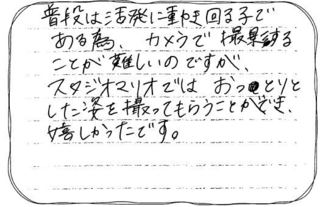 普段は活発に動き回る子で
ある為、カメラで撮影する
ことが難しいのですが、
スタジオマリオでは おっとりと
した姿を撮ってもらうことができ、
嬉しかったです。